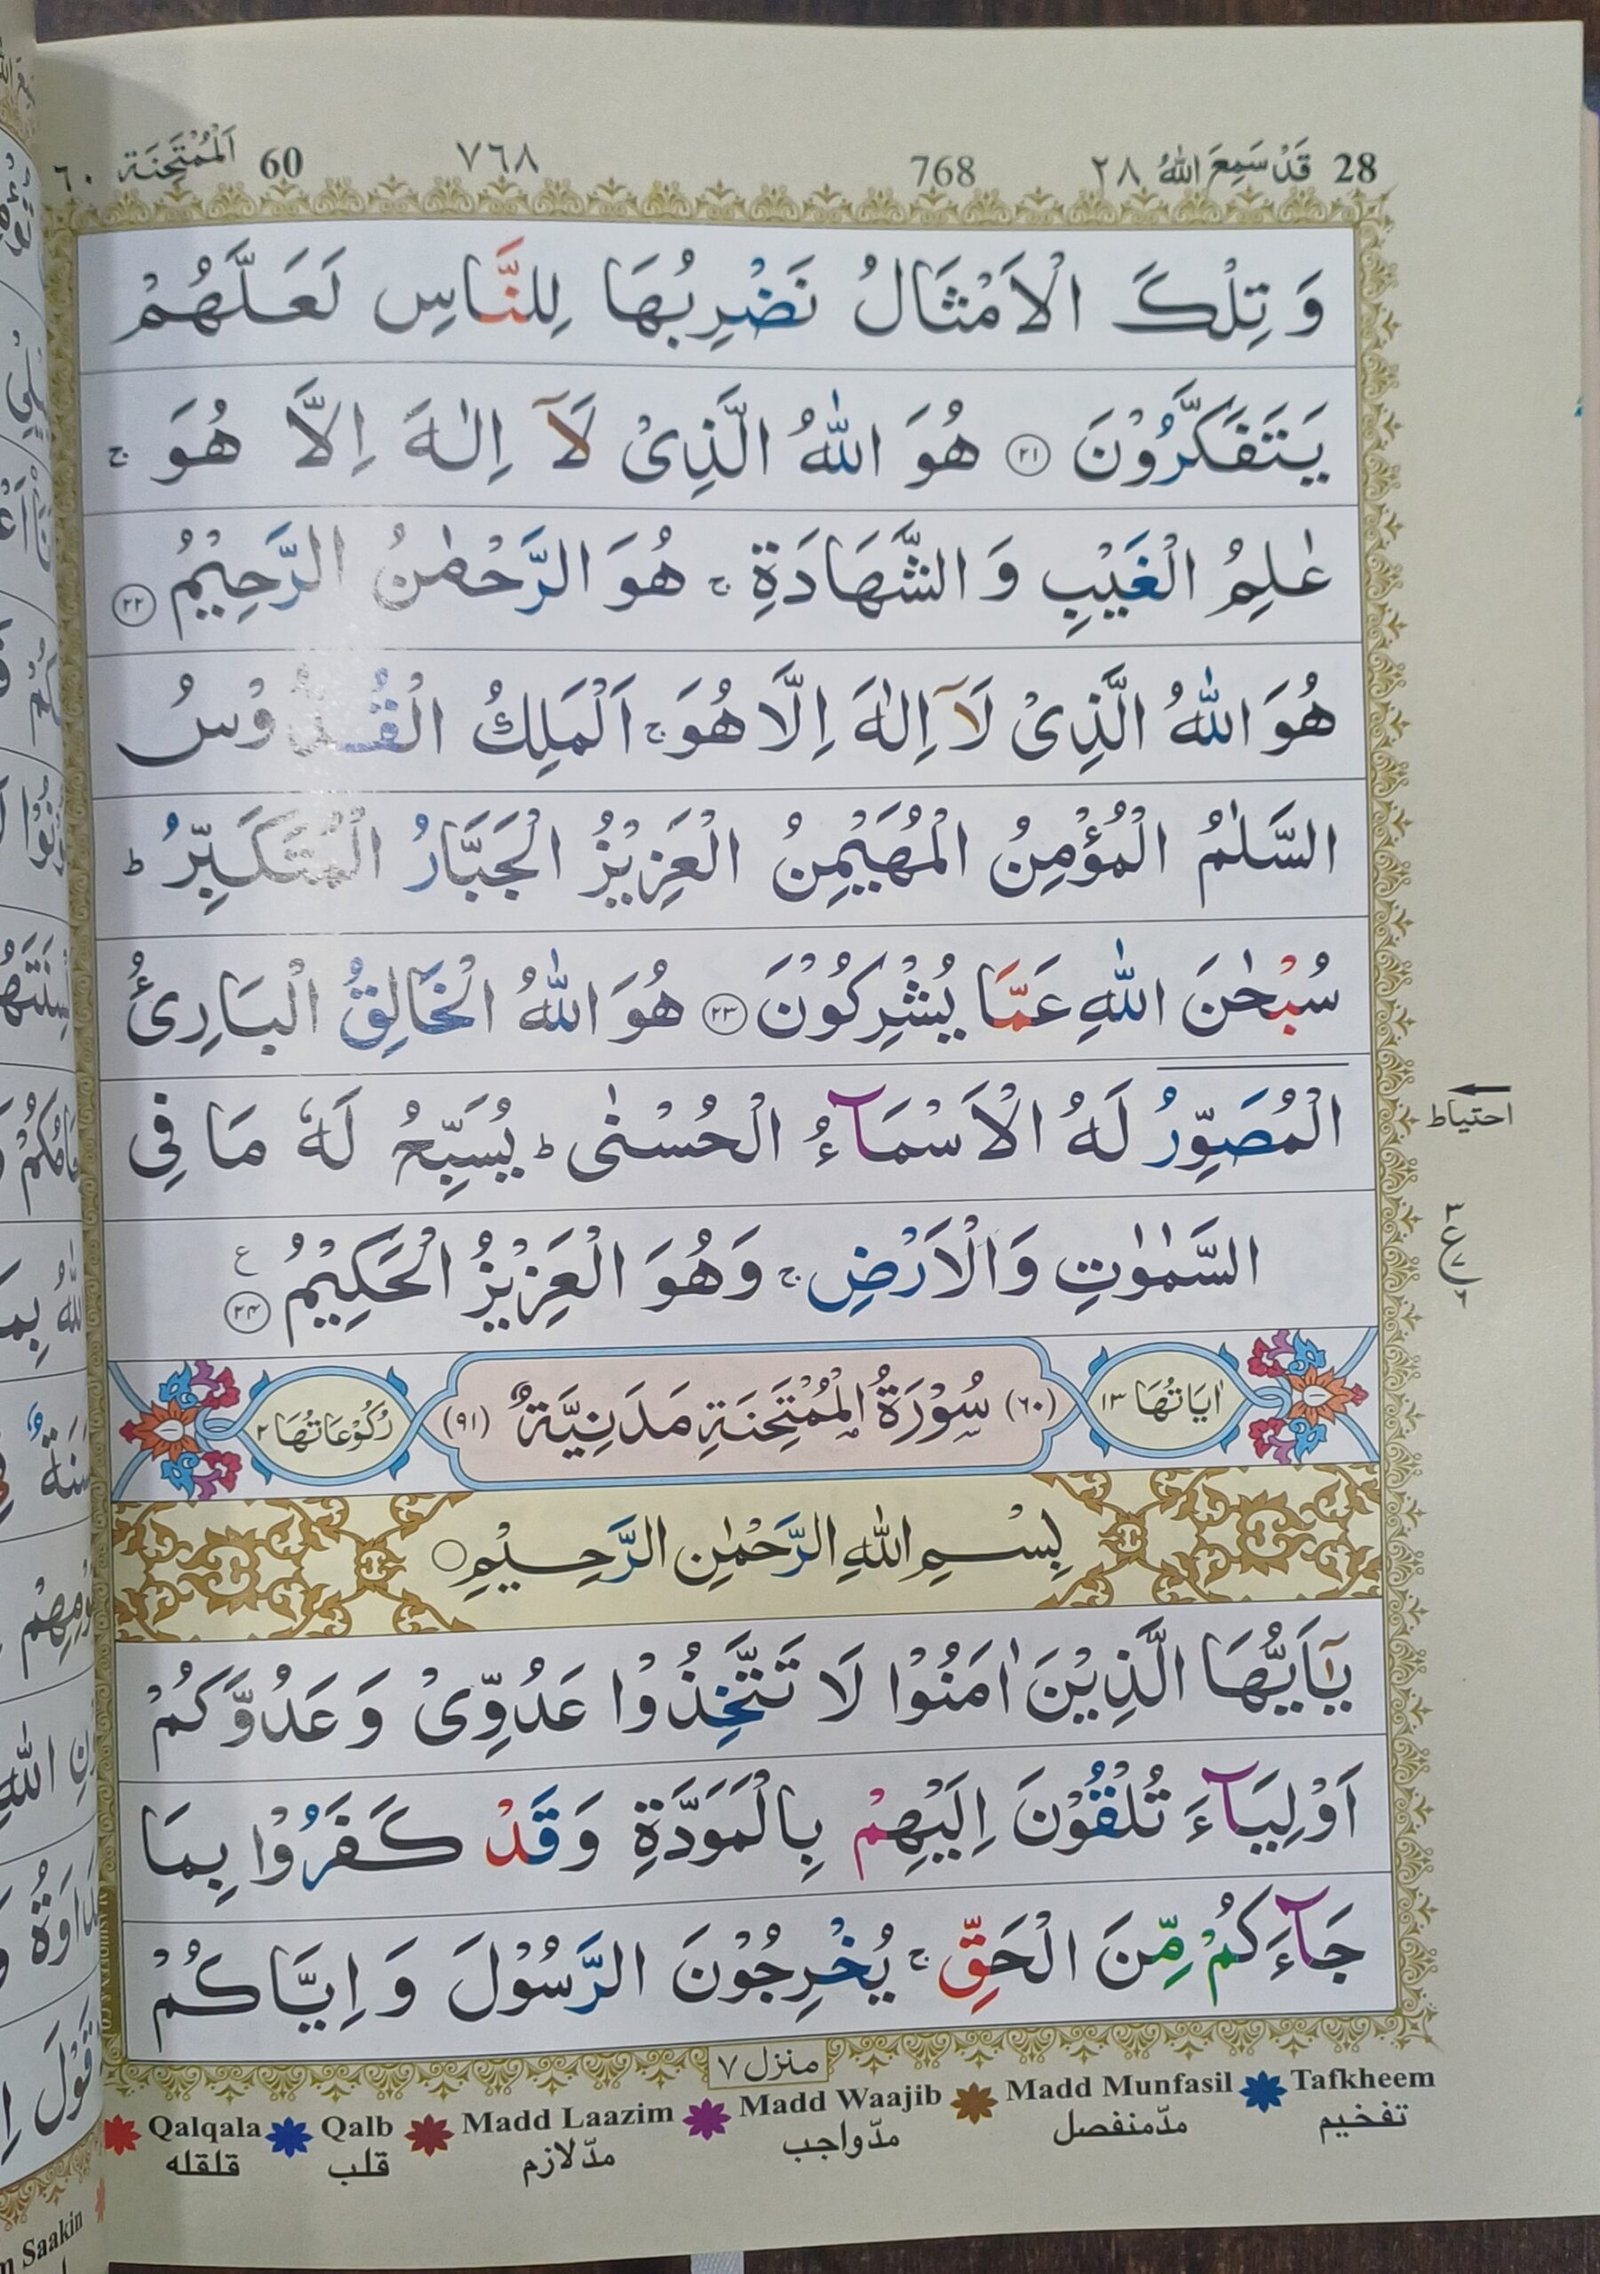 28 قَدْ سَمِعَ اللّٰهُ ٢٨ 768 ٧٦٨ 60 اَلْمُمْتَحِنَة ٦٠
وَ تِلْكَ الْاَمْثَالُ نَضْرِبُهَا لِلنَّاسِ لَعَلَّهُمْ
يَتَفَكَّرُوْنَ ﴿٢١﴾ هُوَ اللّٰهُ الَّذِىْ لَآ اِلٰهَ اِلَّا هُوَ ۚ
عٰلِمُ الْغَيْبِ وَ الشَّهَادَةِ ۚ هُوَ الرَّحْمٰنُ الرَّحِيْمُ ﴿٢٢﴾
هُوَ اللّٰهُ الَّذِىْ لَآ اِلٰهَ اِلَّا هُوَ ۚ اَلْمَلِكُ الْقُدُّوْسُ
السَّلٰمُ الْمُؤْمِنُ الْمُهَيْمِنُ الْعَزِيْزُ الْجَبَّارُ الْمُتَكَبِّرُ ؕ
سُبْحٰنَ اللّٰهِ عَمَّا يُشْرِكُوْنَ ﴿٢٣﴾ هُوَ اللّٰهُ الْخَالِقُ الْبَارِئُ
الْمُصَوِّرُ لَهُ الْاَسْمَآءُ الْحُسْنٰى ؕ يُسَبِّحُ لَهٗ مَا فِى
احتياط
السَّمٰوٰتِ وَ الْاَرْضِ ۚ وَ هُوَ الْعَزِيْزُ الْحَكِيْمُ ﴿٢٤﴾ ع
٣ ع ٧ ٦
اٰيَاتُهَا ١٣ (٦٠) سُوْرَةُ الْمُمْتَحِنَةِ مَدَنِيَّةٌ (٩١) رُكُوْعَاتُهَا ٢
بِسْمِ اللّٰهِ الرَّحْمٰنِ الرَّحِيْمِ
يٰۤاَيُّهَا الَّذِيْنَ اٰمَنُوْا لَا تَتَّخِذُوْا عَدُوِّىْ وَ عَدُوَّكُمْ
اَوْلِيَآءَ تُلْقُوْنَ اِلَيْهِمْ بِالْمَوَدَّةِ وَ قَدْ كَفَرُوْا بِمَا
جَآءَكُمْ مِّنَ الْحَقِّ ۚ يُخْرِجُوْنَ الرَّسُوْلَ وَ اِيَّاكُمْ
منزل ٧
Qalqala Qalb Madd Laazim Madd Waajib Madd Munfasil Tafkheem
تفخيم مدّمنفصل مدّواجب مدّلازم قلب قلقله
Saakin